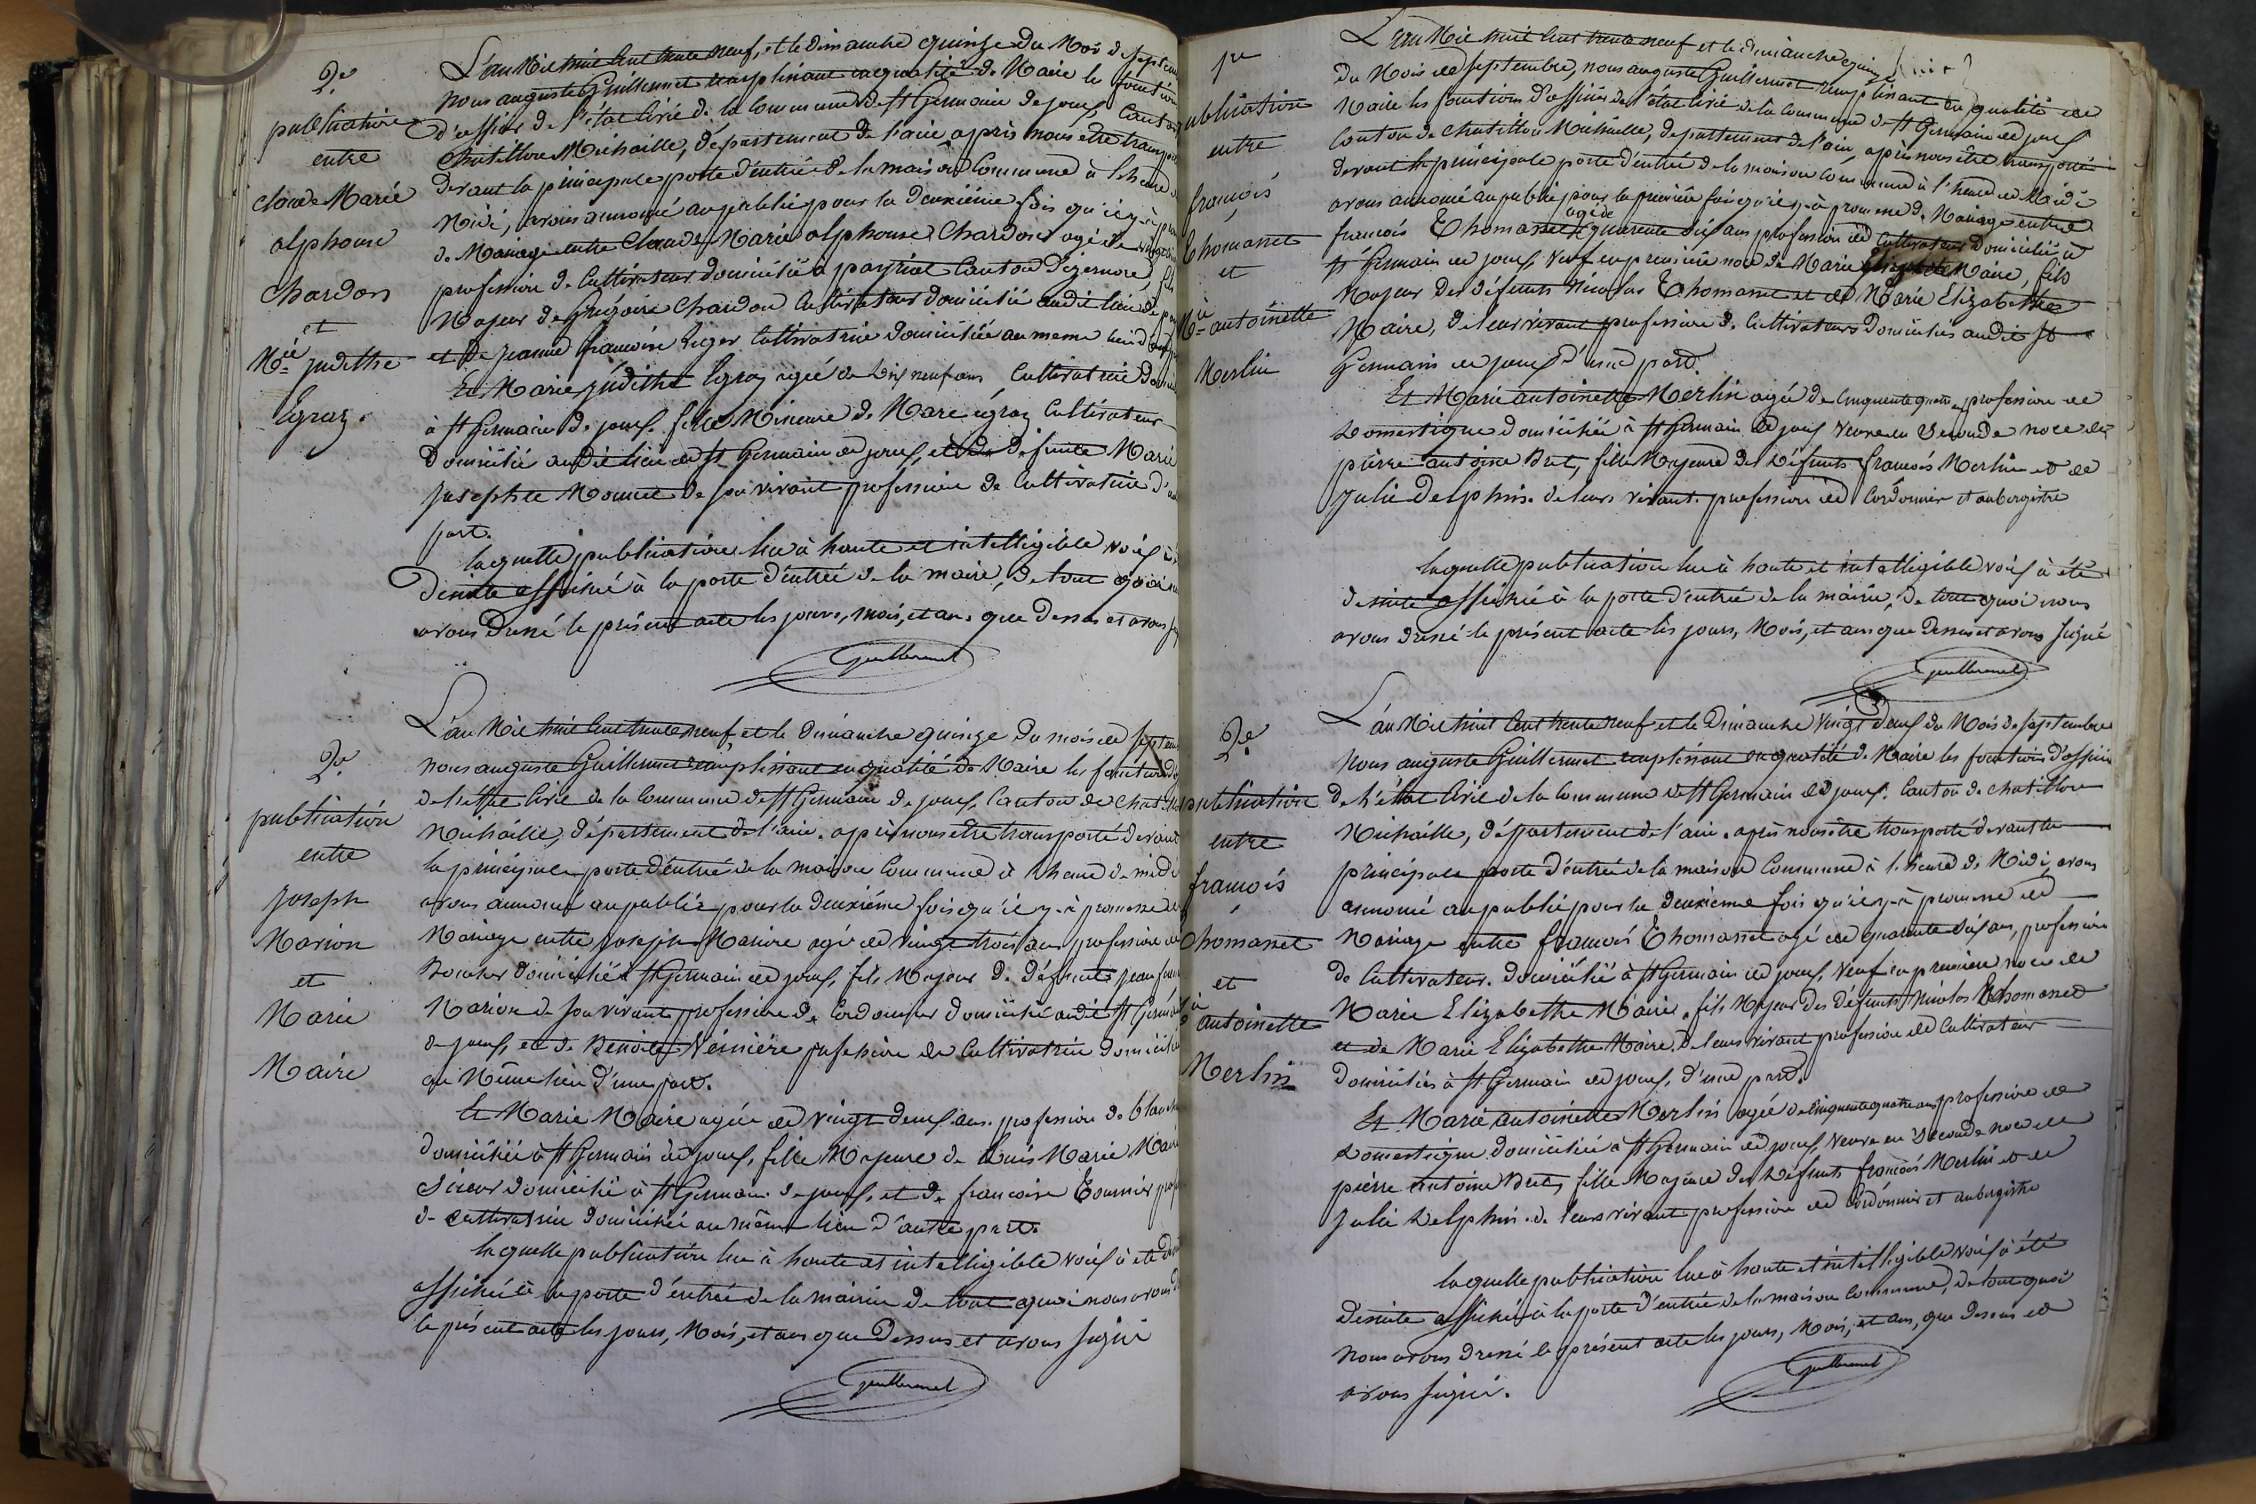 2e
publication
entre
Claude Marie
alphonse
Chardon
et
Mie judithe
Egraz.
L'an Mil huit Cent trente neuf, et le dimanche quinze du Mois de septem
nous auguste Guillermet remplissant en qualité de Maire les fonctions
d'officier de l'état Civil de la Commune de St Germain de joux, Canton
Chatillon Michaille, département de l'ain, après nous être transpor
devant la principale porte d'entrée de la maison Commune à l'heure de
Midi, avons annoncé au public pour la deuxième fois qu'il y-à pro
de Mariage entre Claude Marie alphonse Chardon agé de vingt
profession de Cultivateur domicilié à peyriat Canton d'izernore, fils
Majeur de Grégoire Chardon Cultivateur domicilié audit lieu de
et de jeanne françoise Leger Cultivatrice domiciliée au meme lieu d'
Et Marie judithe Egraz agée de dix neuf ans Cultivatrice domi
à St Germain de joux, fille Mineure de Marc égraz Cultivateur
domicilié audit lieu de St Germain de joux, et de défunte Marie
josephte Monnet de son vivant profession de Cultivatrice d'au
part.
laquelle publication lue à haute et intelligible voix à é
desuite affiché à la porte d'entrée de la mairie, de tout quoi n
avons dressé le présent acte les jours, mois, et an que dessus et avons sig
Guillermet
2e
publication
entre
Joseph
Marion
et
Marie
Maire
L'an Mil huit Cent trente neuf, et le dimanche quinze du mois de septem
nous auguste Guillermet remplissant en qualité de Maire les fonctions d'o
de l'état Civil de la Commune de St Germain de joux, Canton de Chatillon
Michaille, département de l'ain, après nous être transporté devant
la principale porte d'entrée de la maison Commune à l'heure de midi
avons annoncé au public pour la deuxième fois qu'il y-à promesse de
Mariage entre joseph Marion agé de vingt trois ans profession de
Boucher domicilié à St Germain de joux, fils Majeur de défunt jean fran
Marion de son vivant profession de Cordonnier domicilié audit St Germain
de joux, et de Benoite Vernière profession de Cultivatrice domicilié
au Même lieu d'une part.
Et Marie Maire agée de vingt deux ans profession de blanch
domiciliée à St Germain de joux, fille Majeure de Louis Marie Maire
Scieur domicilié à St Germain de joux, et de françoise Tournier prof
de Cultivatrice domiciliée au même lieu d'autre part.
laquelle publication lue à haute et intelligible voix à été de
affiché à la porte d'entrée de la mairie de tout quoi nous avons d
le présent acte les jours, Mois, et an que dessus et avons signé
Guillermet
1re
publication
entre
françois
Thomasset
et
Mie antoinette
Merlin
L'an Mil huit Cent trente neuf et le dimanche quinze
du Mois de septembre, nous auguste Guillermet remplissant en qualité de
Maire les fonctions d'officier de l'état Civil de la Commune de St Germain de joux
Canton de Chatillon Michaille, département de l'ain, après nous être transporté
devant la principale porte d'entrée de la maison Commune à l'heure de Midi
avons annoncé au public pour la première fois qu'il y-à promesse de Mariage entre
françois Thomasset agé de quarante six ans profession de Cultivateur domicilié à
St Germain de joux, Veuf en première noce de Marie Elizabethe Maire, fils
Majeur des défunts Nicolas Thomasset et de Marie Elizabethe
Maire, de leur vivant profession de Cultivateurs domiciliés audit St
Germain de joux d'une part.
Et Marie antoinette Merlin agée de Cinquante quatre ans profession de
Domestique domiciliée à St Germain de joux Veuve en Seconde noce de
pierre antoine Brut, fille Majeure des défunts françois Merlin et de
Julie Delphin. de leurs vivant. profession de Cordonnier et aubergiste
laquelle publication lue à haute et intelligible voix à été
desuite affichée à la porte d'entrée de la mairie, de tout quoi nous
avons dressé le présent acte les jours, Mois, et an que dessus et avons signé
Guillermet
2e
publication
entre
françois
Thomasset
et
Mie antoinette
Merlin
L'an Mil huit Cent trente neuf et le Dimanche Vingt Deux du Mois de septembre
Nous auguste Guillermet remplissant en qualité de Maire les fonctions d'officier
De l'état Civil de la Commune de St Germain de joux, Canton de Chatillon
Michaille, département de l'ain, après nous être transporté devant la
principale porte d'entrée de la maison Commune à l'heure de Midi, avons
annoncé au public pour la deuxième fois qu'il y-à promesse de
Mariage entre françois Thomasset agé de quarante six ans, profession
de Cultivateur, domicilié à St Germain de joux, Veuf en première noce de
Marie Elizabethe Maire, fils Majeur des défunts Nicolas Thomasset
et de Marie Elizabethe Maire. de leurs vivant profession de Cultivateur
domiciliés à St Germain de joux, d'une part.
Et Marie antoinette Merlin agée de Cinquante quatre ans profession de
Domestique domiciliée à St Germain de joux, Veuve en Seconde noce de
pierre antoine Brut, fille Majeure des défunts françois Merlin et de
Julie Delphin. de leurs vivant profession de Cordonnier et aubergiste
laquelle publication lue à haute et intelligible voix à été
desuite affiché à la porte d'entrée de la maison Commune, de tout quoi
Nous avons dressé le présent acte les jours, Mois, et an, que dessus et
avons signé.
Guillermet